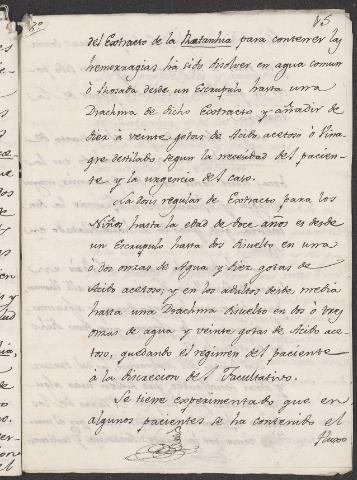 85
del Extracto de la Ratanhia para contener las
hemorragias ha sido disolver en agua comun
ó rosada desde un Escrupulo hasta una
Drachma de dicho Extracto y añadir de
diez à veinte gotas de Acido acetoso ó Vina-
gre destilado segun la necesidad del pacien-
te y la urgencia del caso.
La dosis regular de Extracto para los
Niños hasta la edad de doce años es desde
un Escrupulo hasta dos disuelto en una
ò dos onzas de Agua y diez gotas de
Acido acetoso; y en los adultos desde media
hasta una Drachma disuelto en dos ó tres
onzas de agua y veinte gotas de Acido ace-
toso, quedando el regimen del paciente
à la discrecion del Facultativo.
Se tiene experimentado que en
algunos pacientes se ha contenido el
fluxo